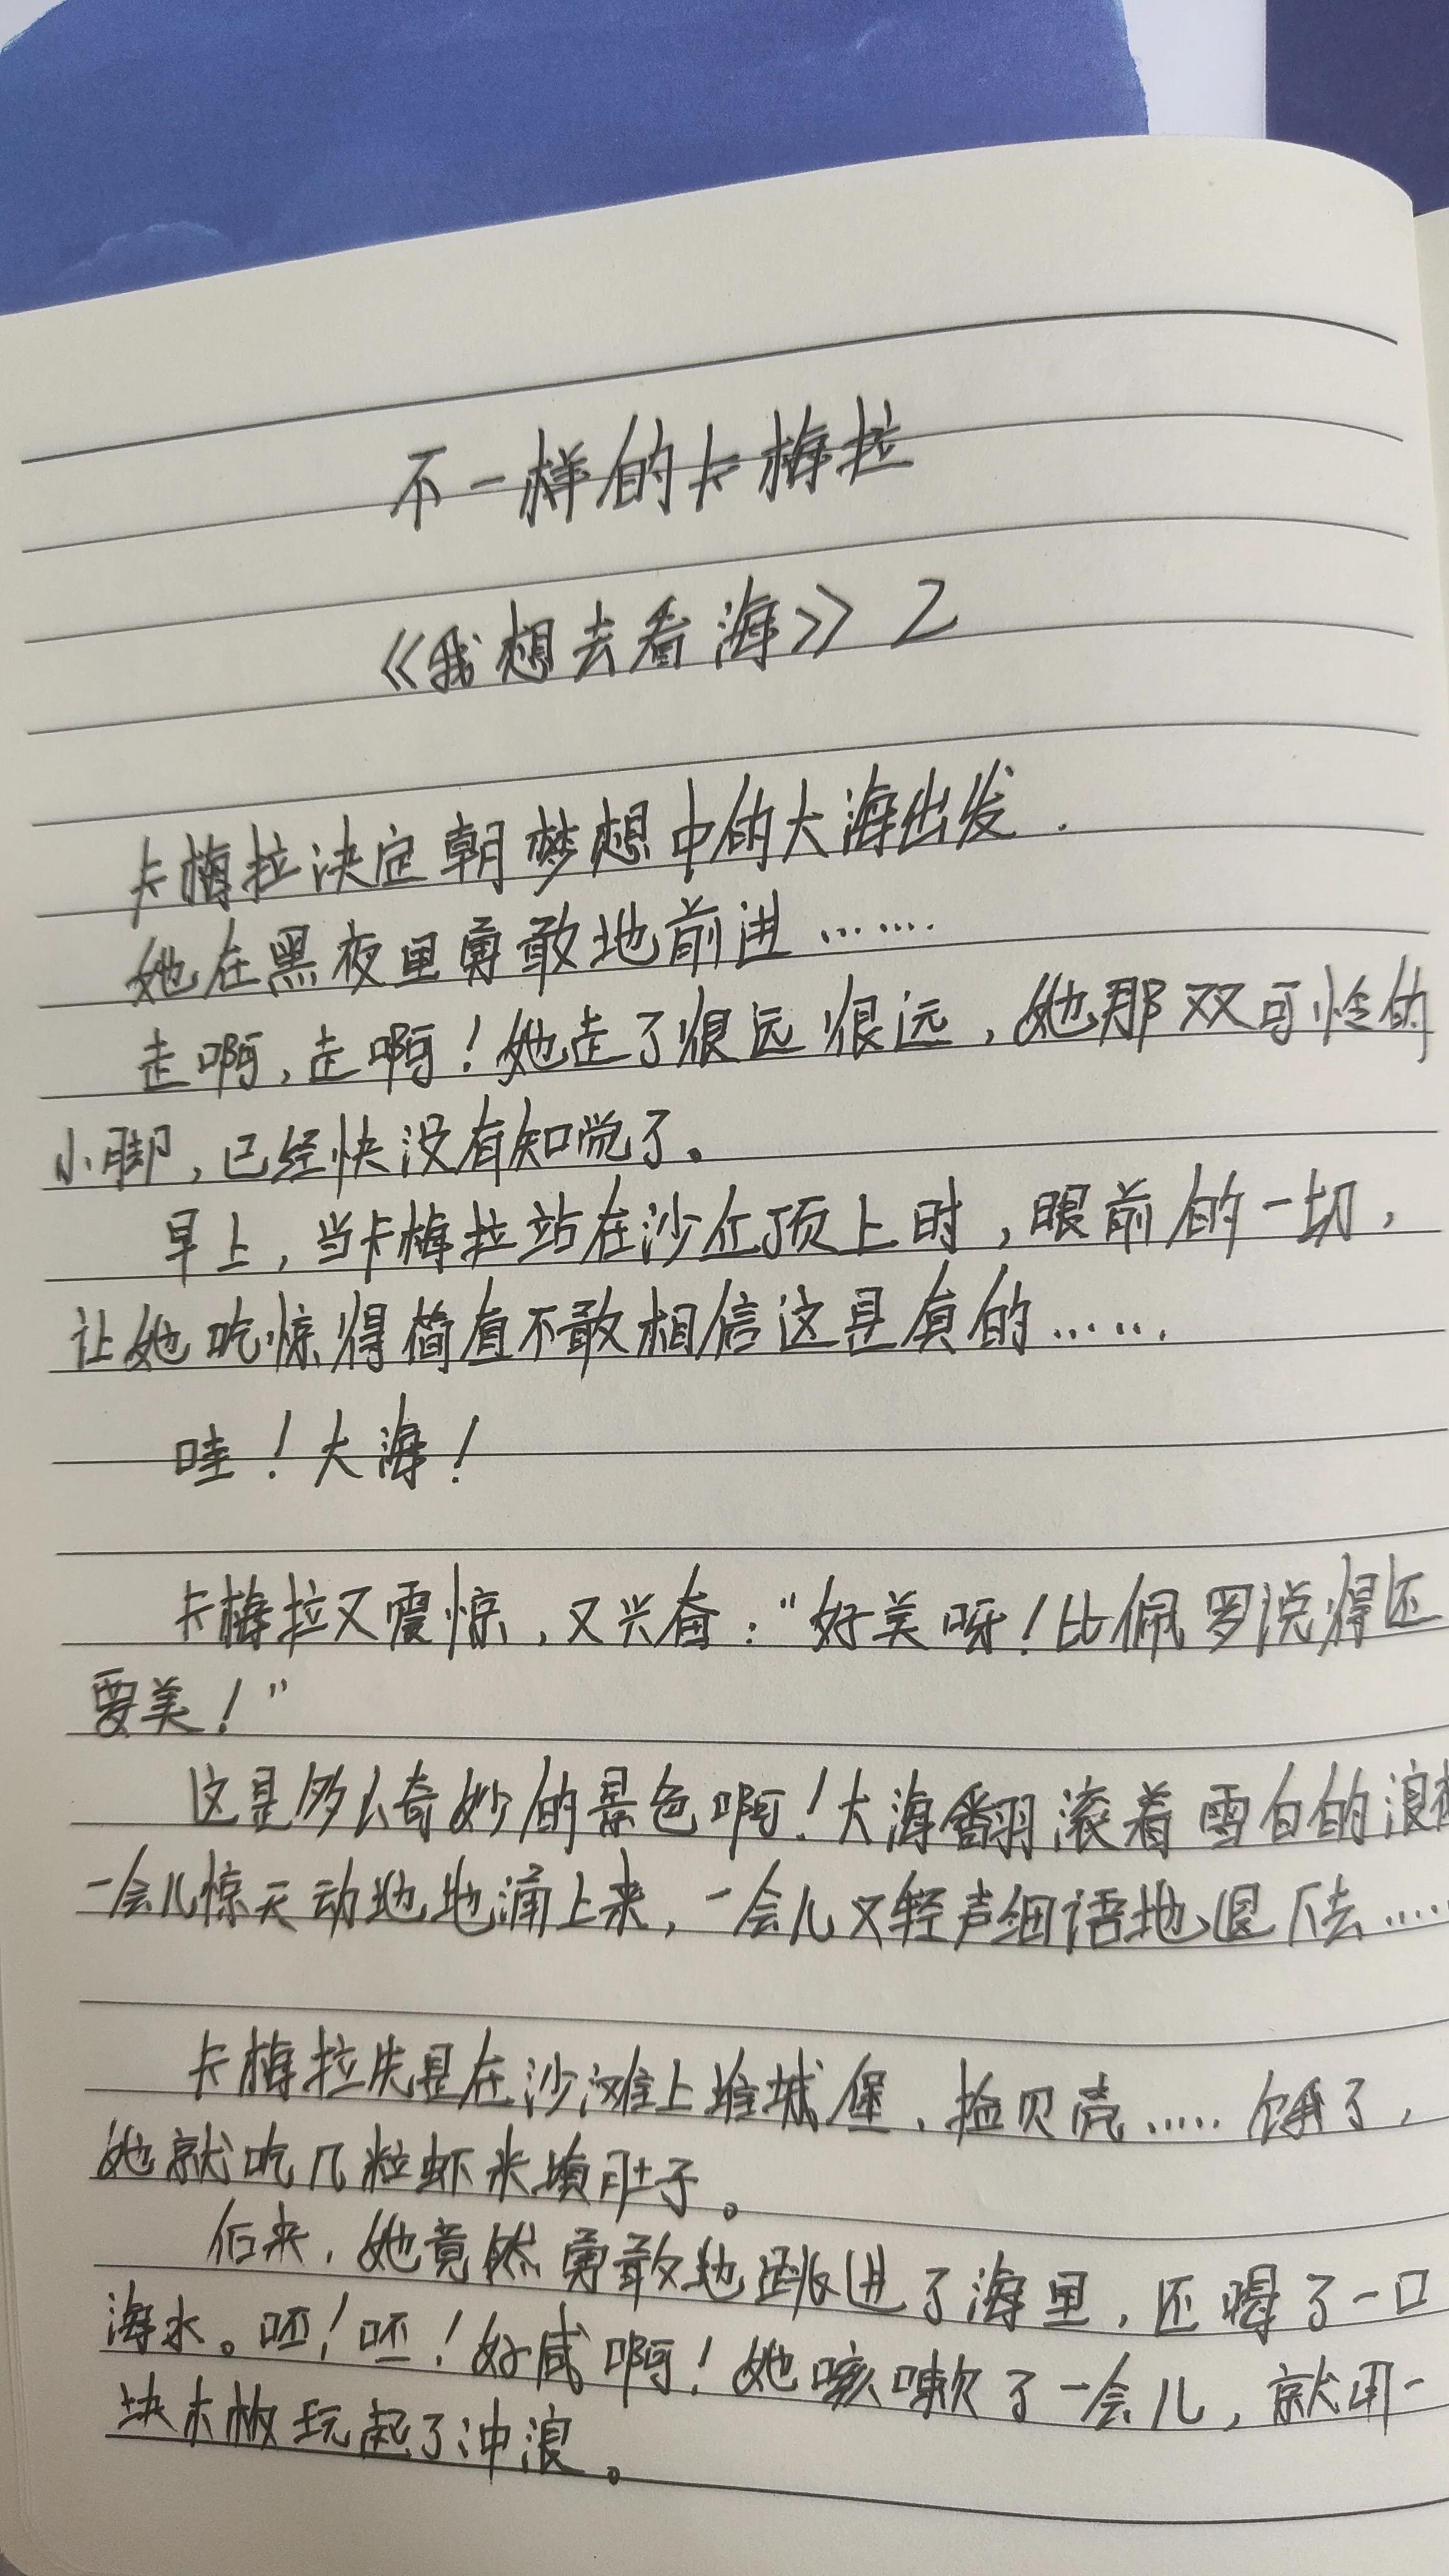 不一样的卡梅拉
《我想去看海》2
卡梅拉决定朝梦想中的大海出发.
她在黑夜里勇敢地前进……
走啊,走啊!她走了很远很远,她那双可怜的
小脚,已经快没有知觉了。
早上,当卡梅拉站在沙丘顶上时,眼前的一切,
让她吃惊得简直不敢相信这是真的……
哇!大海!
卡梅拉又震惊,又兴奋:"好美呀!比佩罗说得还
要美!"
这是多么奇妙的景色啊!大海翻滚着雪白的浪
一会儿惊天动地地涌上来,一会儿又轻声细语地退下去……
卡梅拉先是在沙滩上堆城堡、捡贝壳……饿了,
她就吃几粒虾米填肚子。
后来,她竟然勇敢地跳进了海里,还喝了一口
海水。呸!呸!好咸啊!她咳嗽了一会儿,就用一
块木板玩起了冲浪。